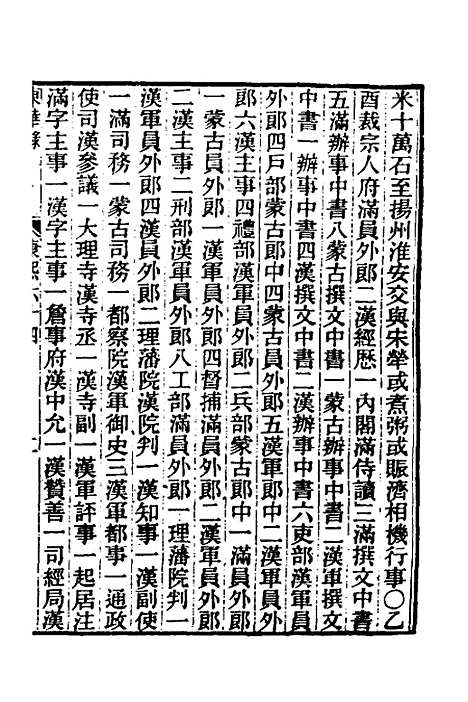 米十萬石至揚州淮安交與宋犖或煮粥或賑濟相機行事○乙
酉裁宗人府滿員外郎二漢經歷一內閣滿侍讀三滿撰文中書
五滿辦事中書八蒙古撰文中書一蒙古辦事中書二漢軍撰文
中書一辦事中書四漢撰文中書二漢辦事中書六吏部漢軍員
外郎四戶部蒙古郎中四蒙古員外郎五漢軍郎中二漢軍員外
郎六漢主事四禮部漢軍員外郎二兵部蒙古郎中一滿員外郎
一蒙古員外郎一漢軍員外郎四督捕滿員外郎二漢軍員外郎
二漢主事二刑部漢軍員外郎八工部滿員外郎一理藩院判一
漢軍員外郎四漢軍員外郎二理藩院漢院判一漢知事一漢副使
一滿司務一蒙古司務一都察院漢軍御史三漢軍都事一通政
使司漢參議一大理寺漢寺丞一漢寺副一漢軍評事一起居注
滿字主事一漢字主事一詹事府漢中允一漢贊善一司經局漢
東華錄 康熙六十四